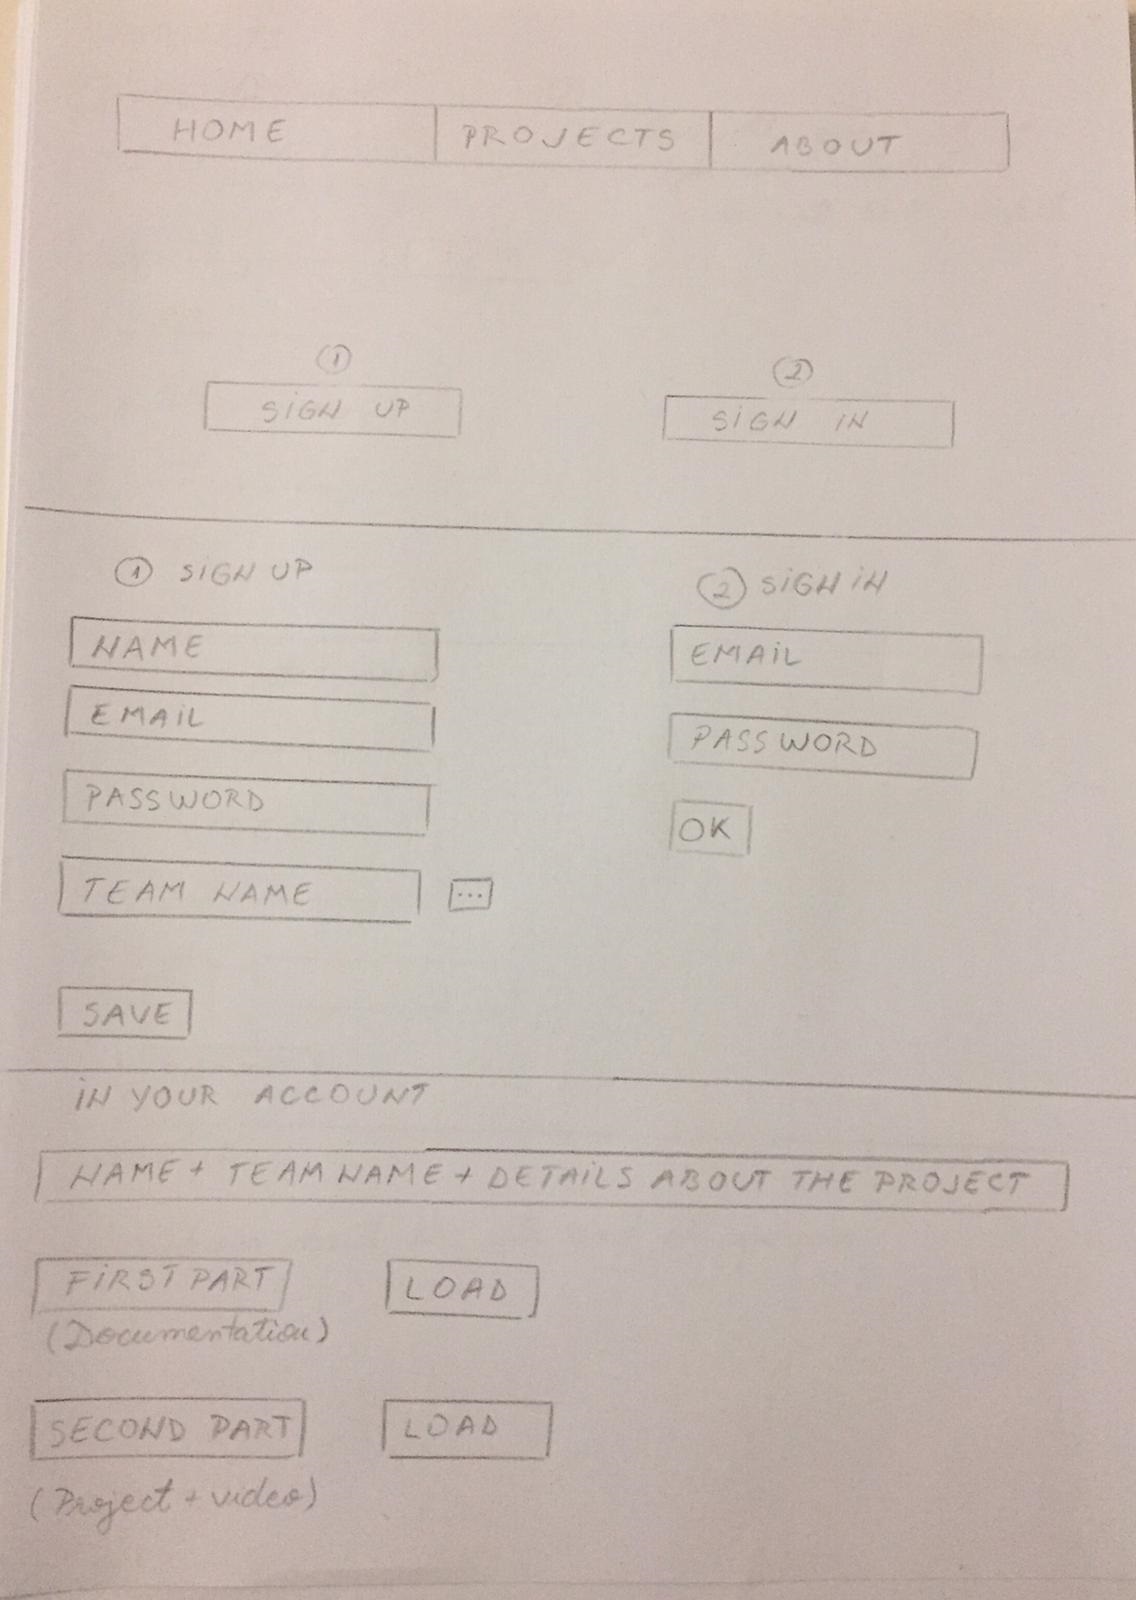 HOME PROJECTS ABOUT
① ②
SIGN UP SIGN IN
① SIGN UP
NAME
EMAIL
PASSWORD
TEAM NAME ...
SAVE
② SIGN IN
EMAIL
PASSWORD
OK
IN YOUR ACCOUNT
NAME + TEAM NAME + DETAILS ABOUT THE PROJECT
FIRST PART LOAD
(Documentation)
SECOND PART LOAD
(Project + video)